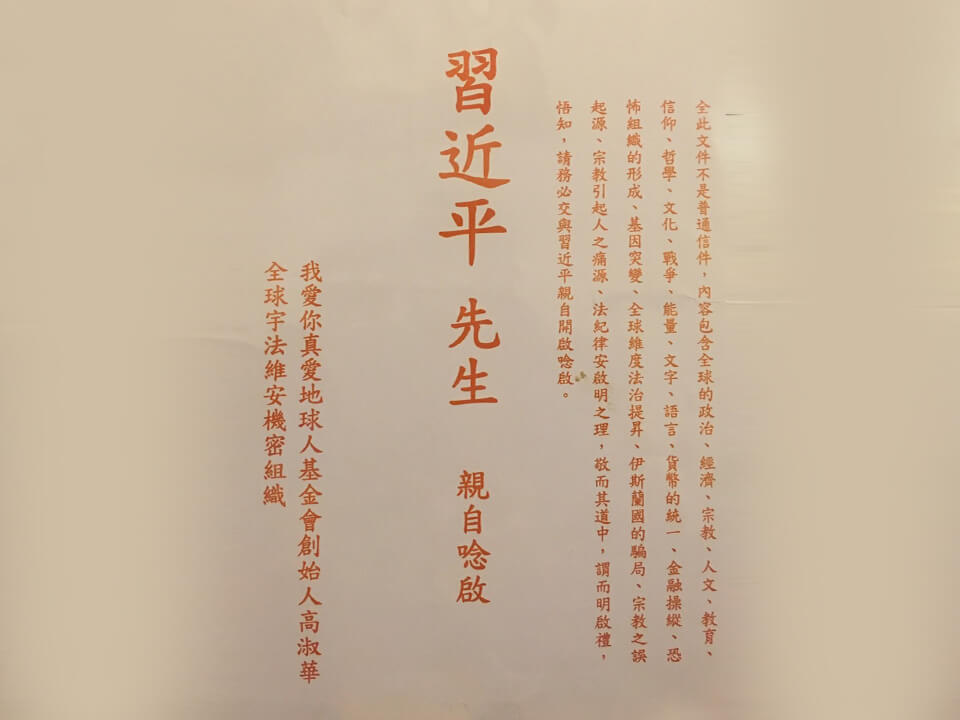 全此文件不是普通信件，內容包含全球的政治、經濟、宗教、人文、教育、
信仰、哲學、文化、戰爭、能量、文字、語言、貨幣的統一、金融操縱、恐
怖組織的形成、基因突變、全球維度法治提昇、伊斯蘭國的騙局、宗教之誤
起源、宗教引起人之痛源、法紀律安啟明之理，敬而其道中，謂而明啟禮，
悟知，請務必交與習近平親自開啟唸啟。
習近平 先生 親自唸啟
我愛你真愛地球人基金會創始人高淑華
全球宇法維安機密組織